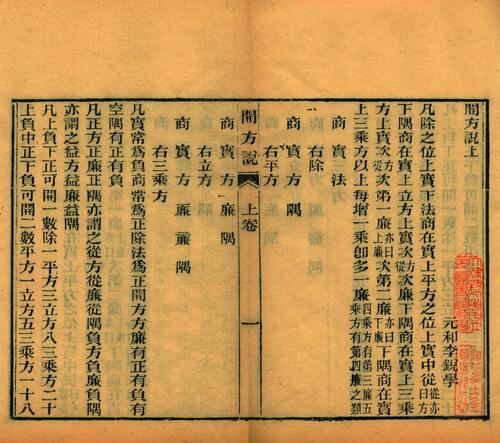 開方說上
元和李銳學
凡除之位上實下法商在實上平方之位上實中從亦曰方
下隅商在實上立方上實次方次廉下隅商在實上三乘
方上實次方次第一廉亦曰上廉次第二廉亦曰下廉下隅商在實
上三乘方以上每增一乘卽多一廉四乘方有第三廉五乘方有第四廉之類
商 實 法
右除
商 實 方 隅
右平方
開方說 上卷 一
商 實 方 廉 隅
右立方
商 實 方 廉 廉 隅
右三乘方
凡實常爲負商常爲正除法爲正開方方廉有正有負有
空隅有正有負
凡正方正廉正隅亦謂之從方從廉從隅負方負廉負隅
亦謂之益方益廉益隅
凡上負下正可開一數除一平方三立方八三乘方二十
上負中正下負可開二數平方一立方五三乘方一十八